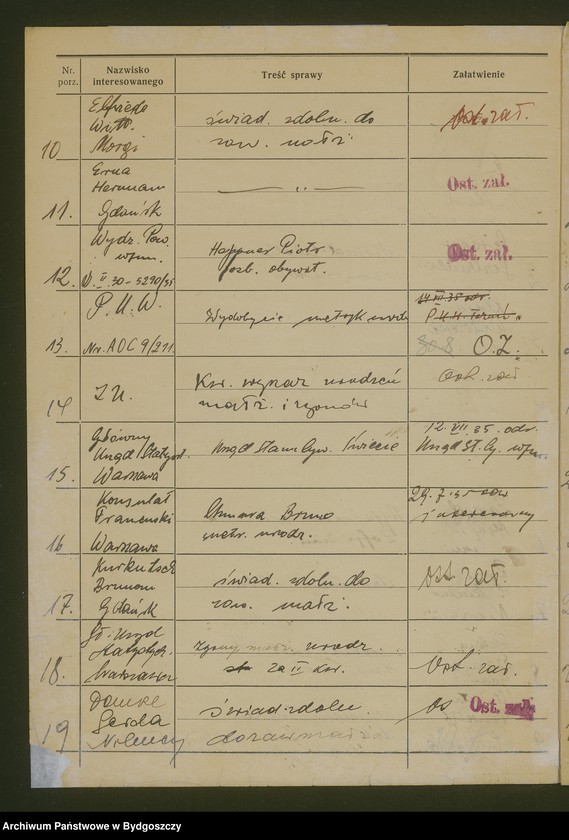 Nr. porz.
Nazwisko interesowanego
Treść sprawy
Załatwienie
10
Elfriede
Witt
Morgi
świad. zdoln. do
zaw. małż.
Ost. zał.
11.
Erna
Hermann
Gdańsk
— " —
Ost. zał.
12.
Wydz. Pow.
wjm.
II 30-5290/35
Piotr
posb. obywat.
Ost. zał.
13.
P. U. W.
Nr. AOC 9/211.
Wydobycie metryk
14 III 35 odr.
P.U.W. Toruń
808 O.Z.
14
Z U.
Kw. wykaz urodzeń
małż. i zgonów
Ost. zał
15.
Główny
Urząd Statyst.
Warszawa
Urząd Stanu Cyw. Świecie
12. VII 35. odr.
Urząd St. Cy. wjm.
16
Konsulat
Francuski
Warszawa
Bruno
metr. urodz.
29.7.35
interesowany
17.
Brunon
Gdańsk
świad. zdoln. do
zaw. małż.
Ost. zał.
18.
Gł. Urząd
Statystycz.
Warszawa
Zgony, małż. urodz.
za II kw.
Ost. zał.
19
Gerda
Niemcy
świad. zdoln.
do zaw. małż.
Os Ost. zał.
Archiwum Państwowe w Bydgoszczy